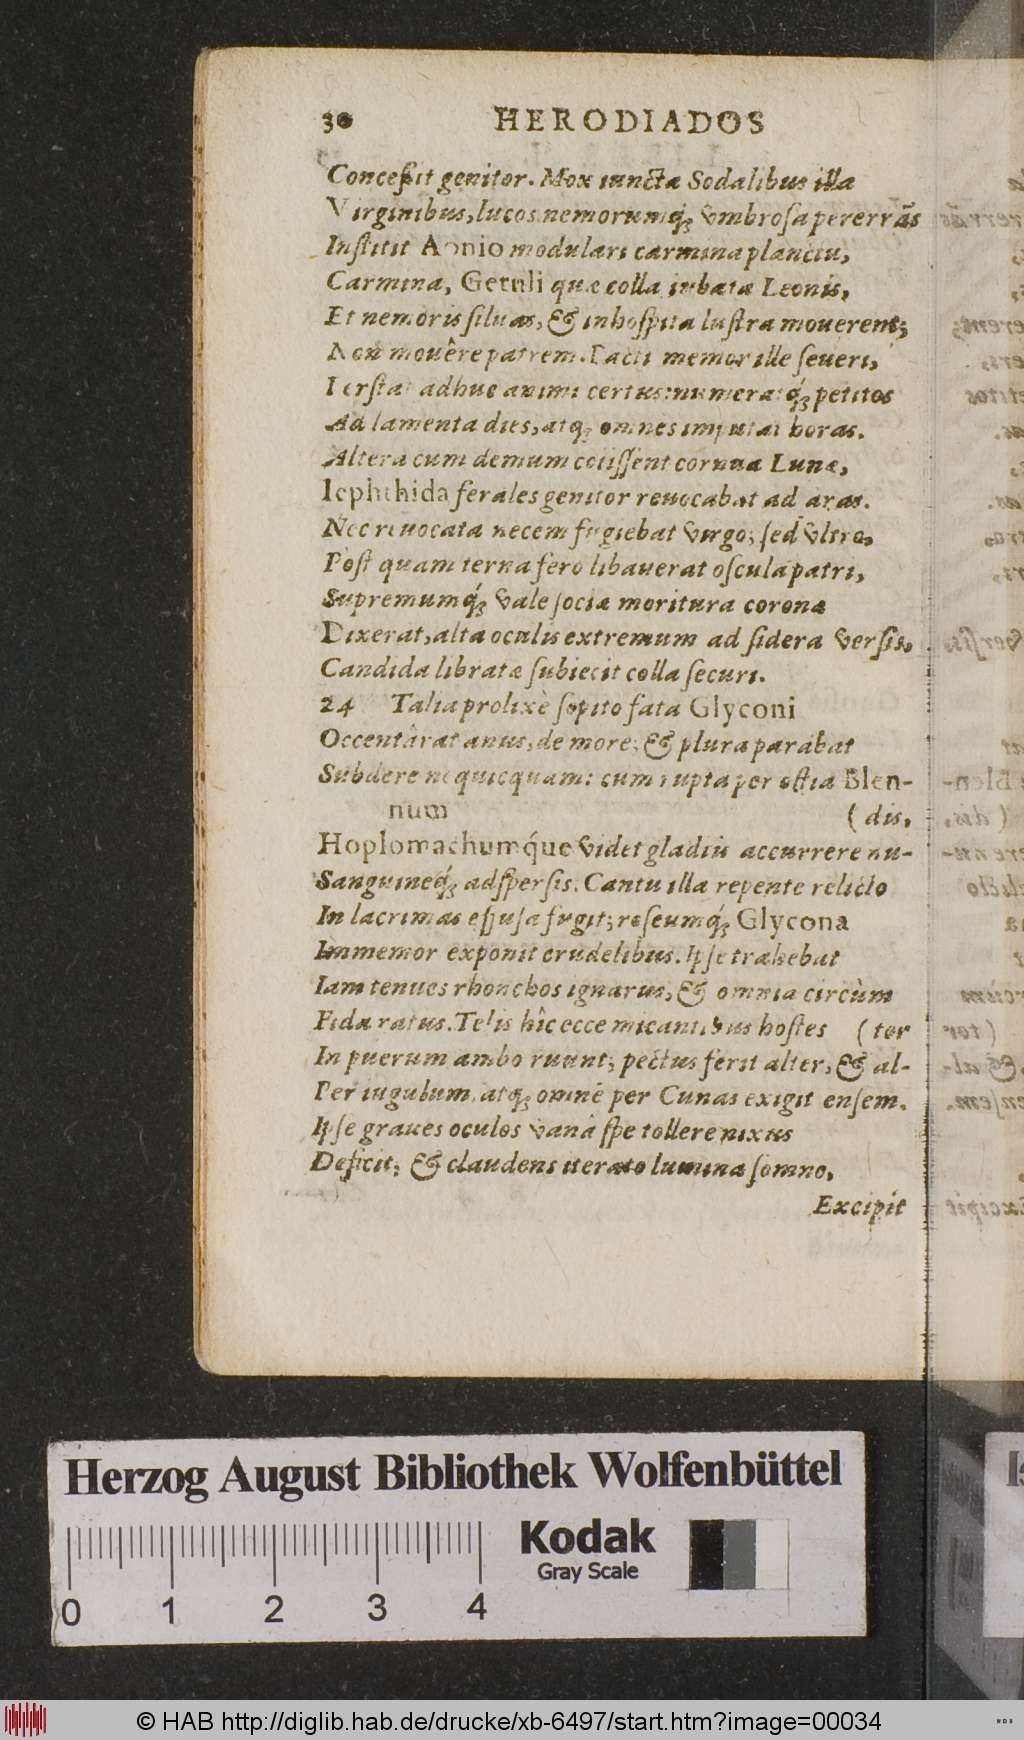 30 HERODIADOS
Conceſsit genitor. Mox iunctæ Sodalibus illa
Virginibus, lucos nemorumq́; vmbroſa pererrãs
Inſtitit Aonio modulari carmina planctu,
Carmina, Getuli quæ colla iubatæ Leonis,
Et nemoris ſiluas, & inhoſpita luſtra mouerent;
Non mouêre patrem. Pacti memor ille ſeueri,
Perſtat adhuc animi certus: numeratq́; petitos
Ad lamenta dies, atq; omnes imputat horas.
Altera cum demum coiiſſent cornua Lunæ,
Iephthida ferales genitor reuocabat ad aras.
Nec reuocata necem fugiebat virgo; ſed vltro,
Poſt quam terna fero libauerat oſcula patri,
Supremumq́; vale ſociæ moritura coronæ
Dixerat, alta oculis extremum ad ſidera verſis,
Candida libratæ ſubiecit colla ſecuri.
24 Talia prolixè ſopito fata Glyconi
Occentârat anus, de more; & plura parabat
Subdere nequicquam: cum rupta per oſtia Blen-
num (dis,
Hoplomachumq́ue videt gladiis accurrere nu-
Sanguineq́; adſperſis. Cantu illa repente relicto
In lacrimas effuſa fugit; roſeumq́; Glycona
Immemor exponit crudelibus. Ipſe trahebat
Iam tenues rhonchos ignarus, & omnia circùm
Fida ratus. Telis hîc ecce micantibus hoſtes (ter
In puerum ambo ruunt; pectus ferit alter, & al-
Per iugulum, atq; omne per Cunas exigit enſem.
Ipſe graues oculos vanâ ſpe tollere nixus
Deficit; & claudens iterato lumina ſomno,
Excipit
Herzog August Bibliothek Wolfenbüttel
0 1 2 3 4
Kodak
Gray Scale
© HAB http://diglib.hab.de/drucke/xb-6497/start.htm?image=00034